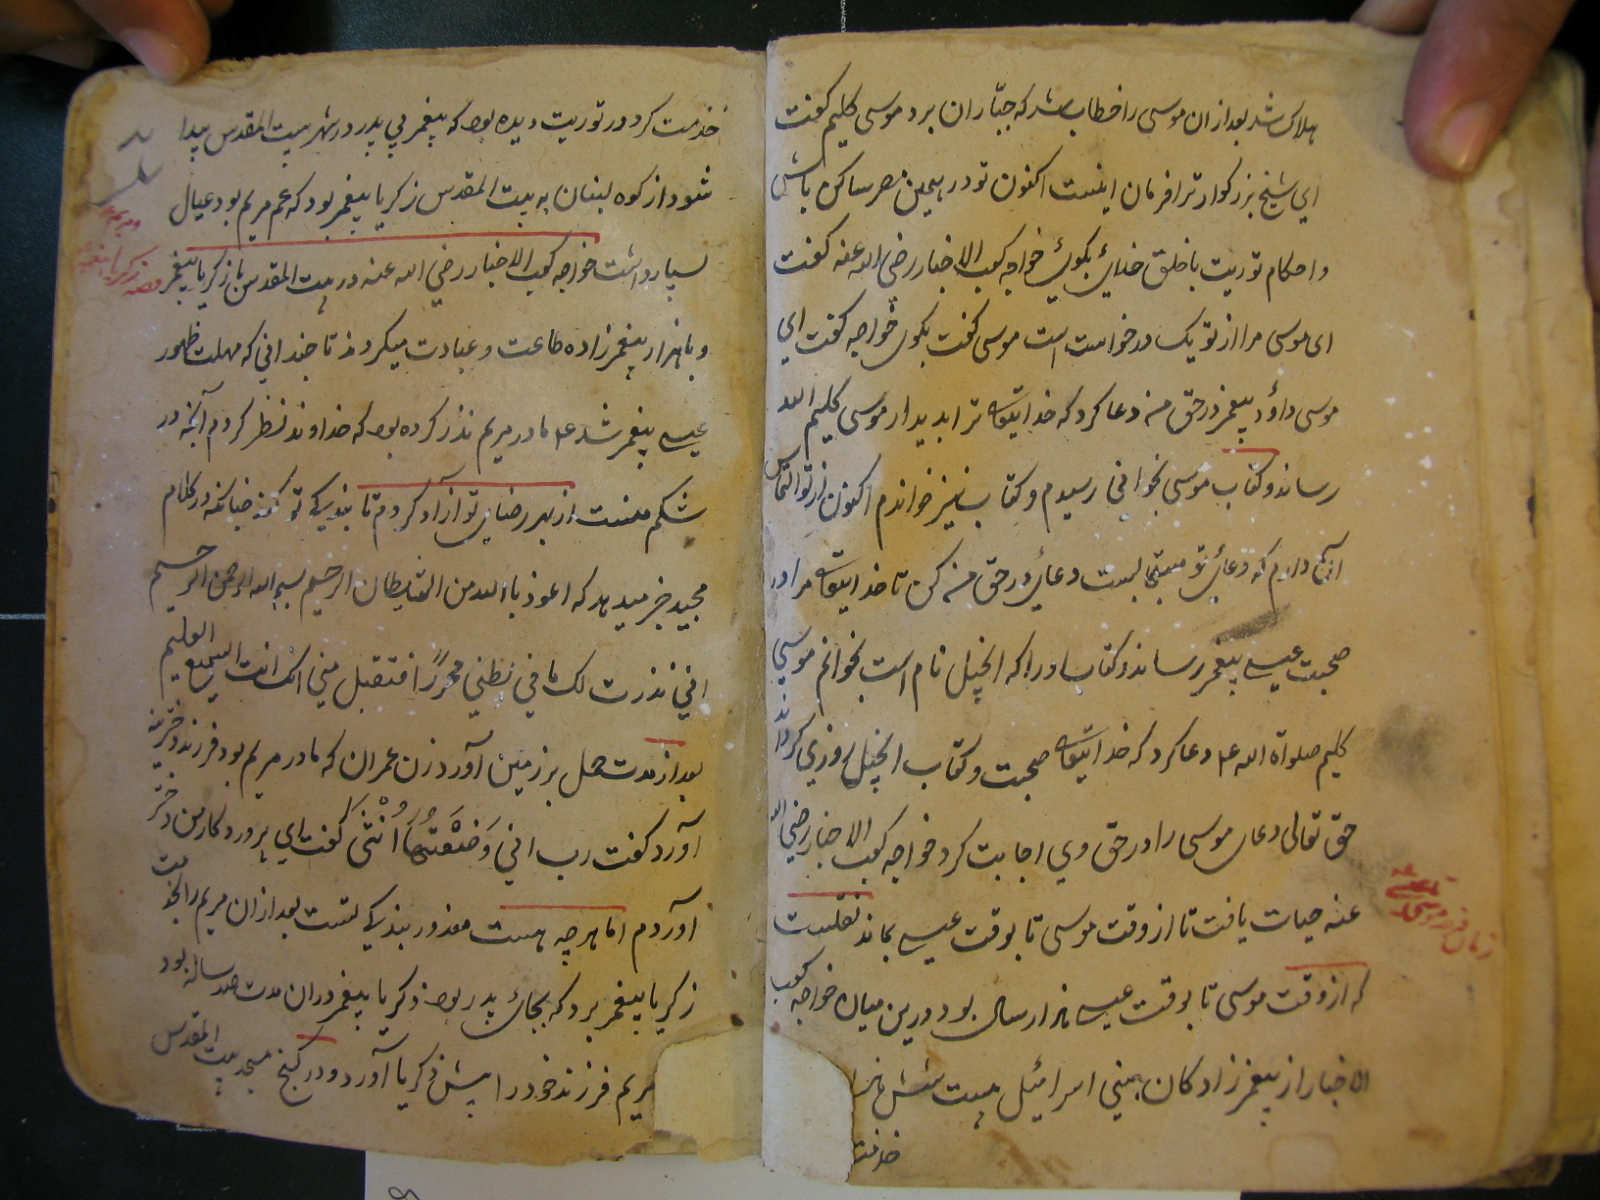 هلاک شد بعد ازان موسی را خطاب شد که جباران برد موسی کلیم کفت
ای شیخ بزرکوار ترا فرمان اینست اکنون تو در همین مصر ساکن باش
و احکام توریت با خلق خدای بکوی خواجه کعب الاخبار رضی الله عنه کفت
ای موسی مرا از تو یک درخواست است موسی کفت بکوی خواجه کفت ای
موسی داؤد پیغمبر در حق من دعا کرد که خدایتعالی ترا بدیدار موسی کلیم الله
رساند و کتاب موسی بخوانی رسیدم و کتاب نیز خواندم اکنون از تو التماس
آن دارم که دعای تو مستجابست دعای در حق من کن تا خدایتعالی مرا در
صحبت عیسی پیغمبر رساند و کتاب اورا که انجیل نام است بخوانم موسی
کلیم صلواة الله ع دعا کرد که خدایتعالی صحبت و کتاب انجیل روزی کرداند
حق تعالی دعای موسی را در حق وی اجابت کرد خواجه کعب الاخبار رضی الله
عنه حیات یافت تا از وقت موسی تا بوقت عیسی بماند نقلست
که از وقت موسی تا بوقت عیسی هزار سال بود درین میان خواجه کعب
الاخبار از پیغمبرزادکان بنی اسرائیل بیست شش هزار
خدمت
خدمت کرد در توریت دیده بود که پیغمبر بی پدر در شهر بیت المقدس پیدا
شود از کوه لبنان به بیت المقدس زکریا پیغمبر بود که عم مریم بود عیال
بسیار داشت خواجه کعب الاخبار رضی الله عنه در بیت المقدس با زکریا پیغمبر
و با هزار پیغمبرزاده طاعت و عبادت میکردند تا چندانی که مهلت ظهور
عیسی پیغمبر شد ع مادر مریم نذر کرده بود که خداوند نظر کردم آنچه در
شکم منست از بهر رضای تو آزاد کردم تا بندیکی تو کند چنانکه در کلام
مجید خبر میدهد که اعوذ بالله من الشیطان الرجیم بسم الله الرحمن الرحیم
انی نذرت لک ما فی بطنی محررًا فتقبل منی انک انت السمیع العلیم
بعد از مدت حمل بر زمین آورد زن عمران که مادر مریم بود فرزند دخترینه
آورد کفت رب انی وَضَعْتُهَا اُنْثٰی کفت ای پروردکار من دختر
آوردم اما هرچه هست معذور بندیکی تست بعد ازان مریم را بخدمت
زکریا پیغمبر برد که بجای پدر بود زکریا پیغمبر دران مدت صد ساله بود
مریم فرزند خود را پیش زکریا آورد و در کنج مسجد بیت المقدس